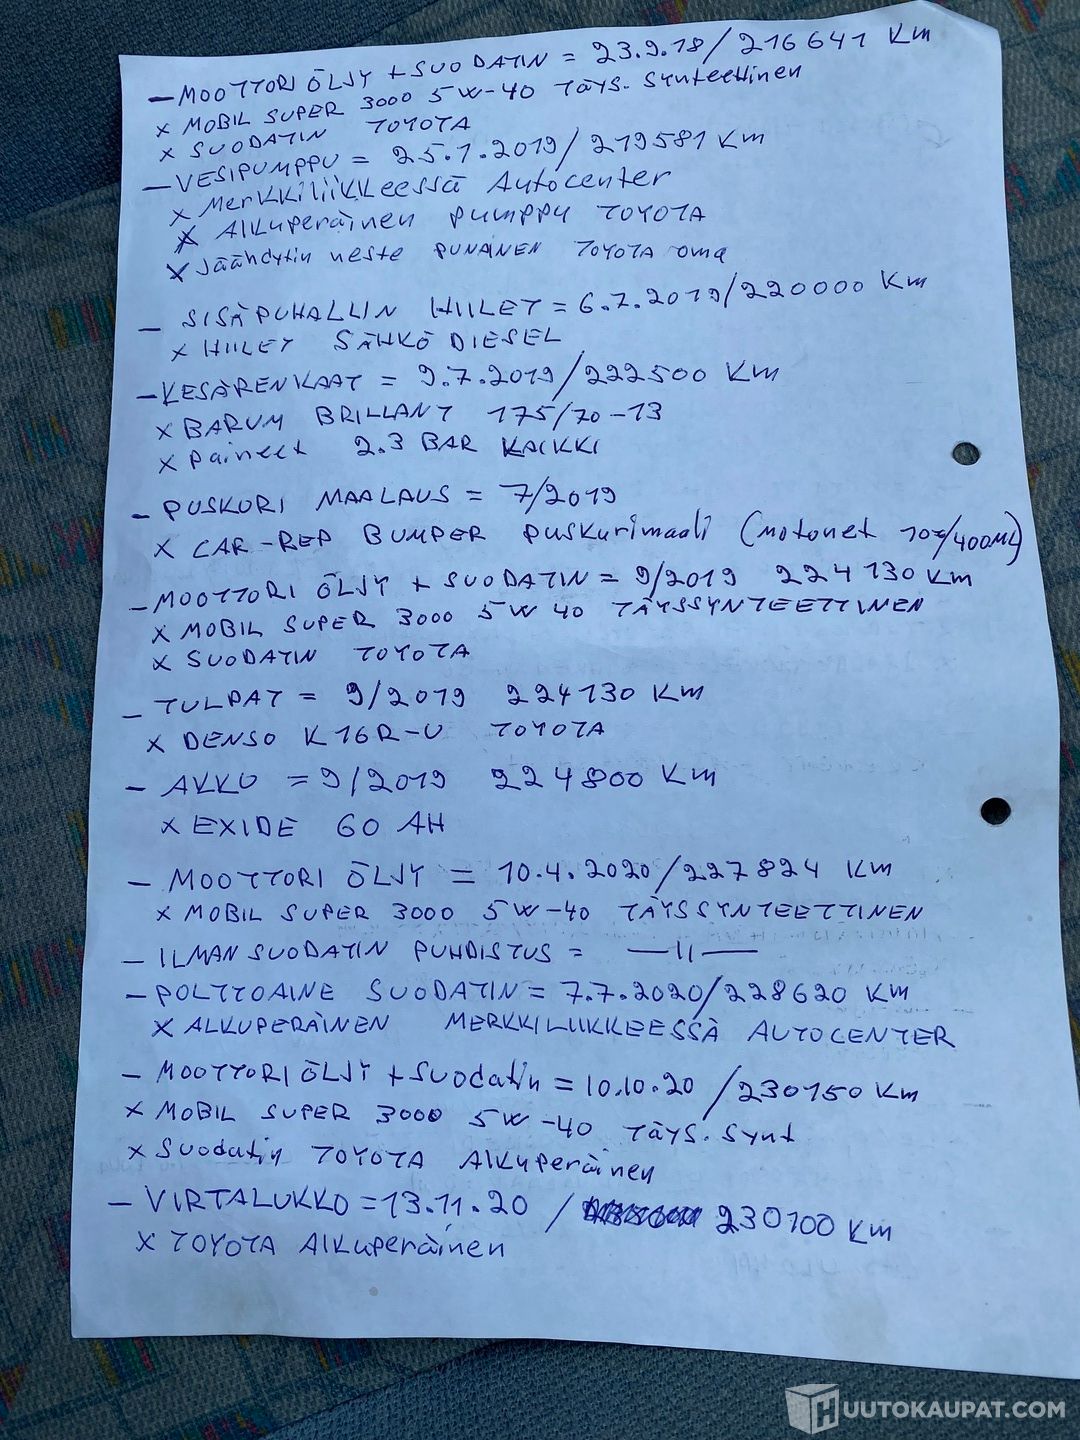 - MOOTTORI ÖLJY + SUODATIN = 23.9.18 / 216641 Km
x MOBIL SUPER 3000 5W-40 TÄYS. SYNTEETTINEN
x SUODATIN TOYOTA
- VESIPUMPPU = 25.1.2019 / 219581 Km
x Merkkiliikkeessä Autocenter
x Alkuperäinen pumppu TOYOTA
x Jäähdytin neste PUNAINEN TOYOTA oma
- SISÄPUHALLIN HIILET = 6.7.2019 / 220000 Km
x HIILET SÄHKÖ DIESEL
- KESÄRENKAAT = 9.7.2019 / 222500 Km
x BARUM BRILLANT 175/70-13
x Paineet 2.3 BAR KAIKKI
- PUSKURI MAALAUS = 7/2019
x CAR-REP BUMPER puskurimaali (motonet 10€/400ML)
- MOOTTORI ÖLJY + SUODATIN = 9/2019 224130 Km
x MOBIL SUPER 3000 5W 40 TÄYSSYNTEETTINEN
x SUODATIN TOYOTA
- TULPAT = 9/2019 224130 Km
x DENSO K16R-U TOYOTA
- AKKU = 9/2019 224800 Km
x EXIDE 60 AH
- MOOTTORI ÖLJY = 10.4.2020 / 227824 Km
x MOBIL SUPER 3000 5W-40 TÄYSSYNTEETTINEN
- ILMANSUODATIN PUHDISTUS = —11—
- POLTTOAINE SUODATIN = 7.7.2020 / 228620 Km
x ALKUPERÄINEN MERKKILIIKKEESSÄ AUTOCENTER
- MOOTTORI ÖLJY + Suodatin = 10.10.20 / 230150 Km
x MOBIL SUPER 3000 5W-40 TÄYS. SYNT
x Suodatin TOYOTA Alkuperäinen
- VIRTALUKKO = 13.11.20 / 230100 Km
x TOYOTA Alkuperäinen
HUUTOKAUPAT.COM